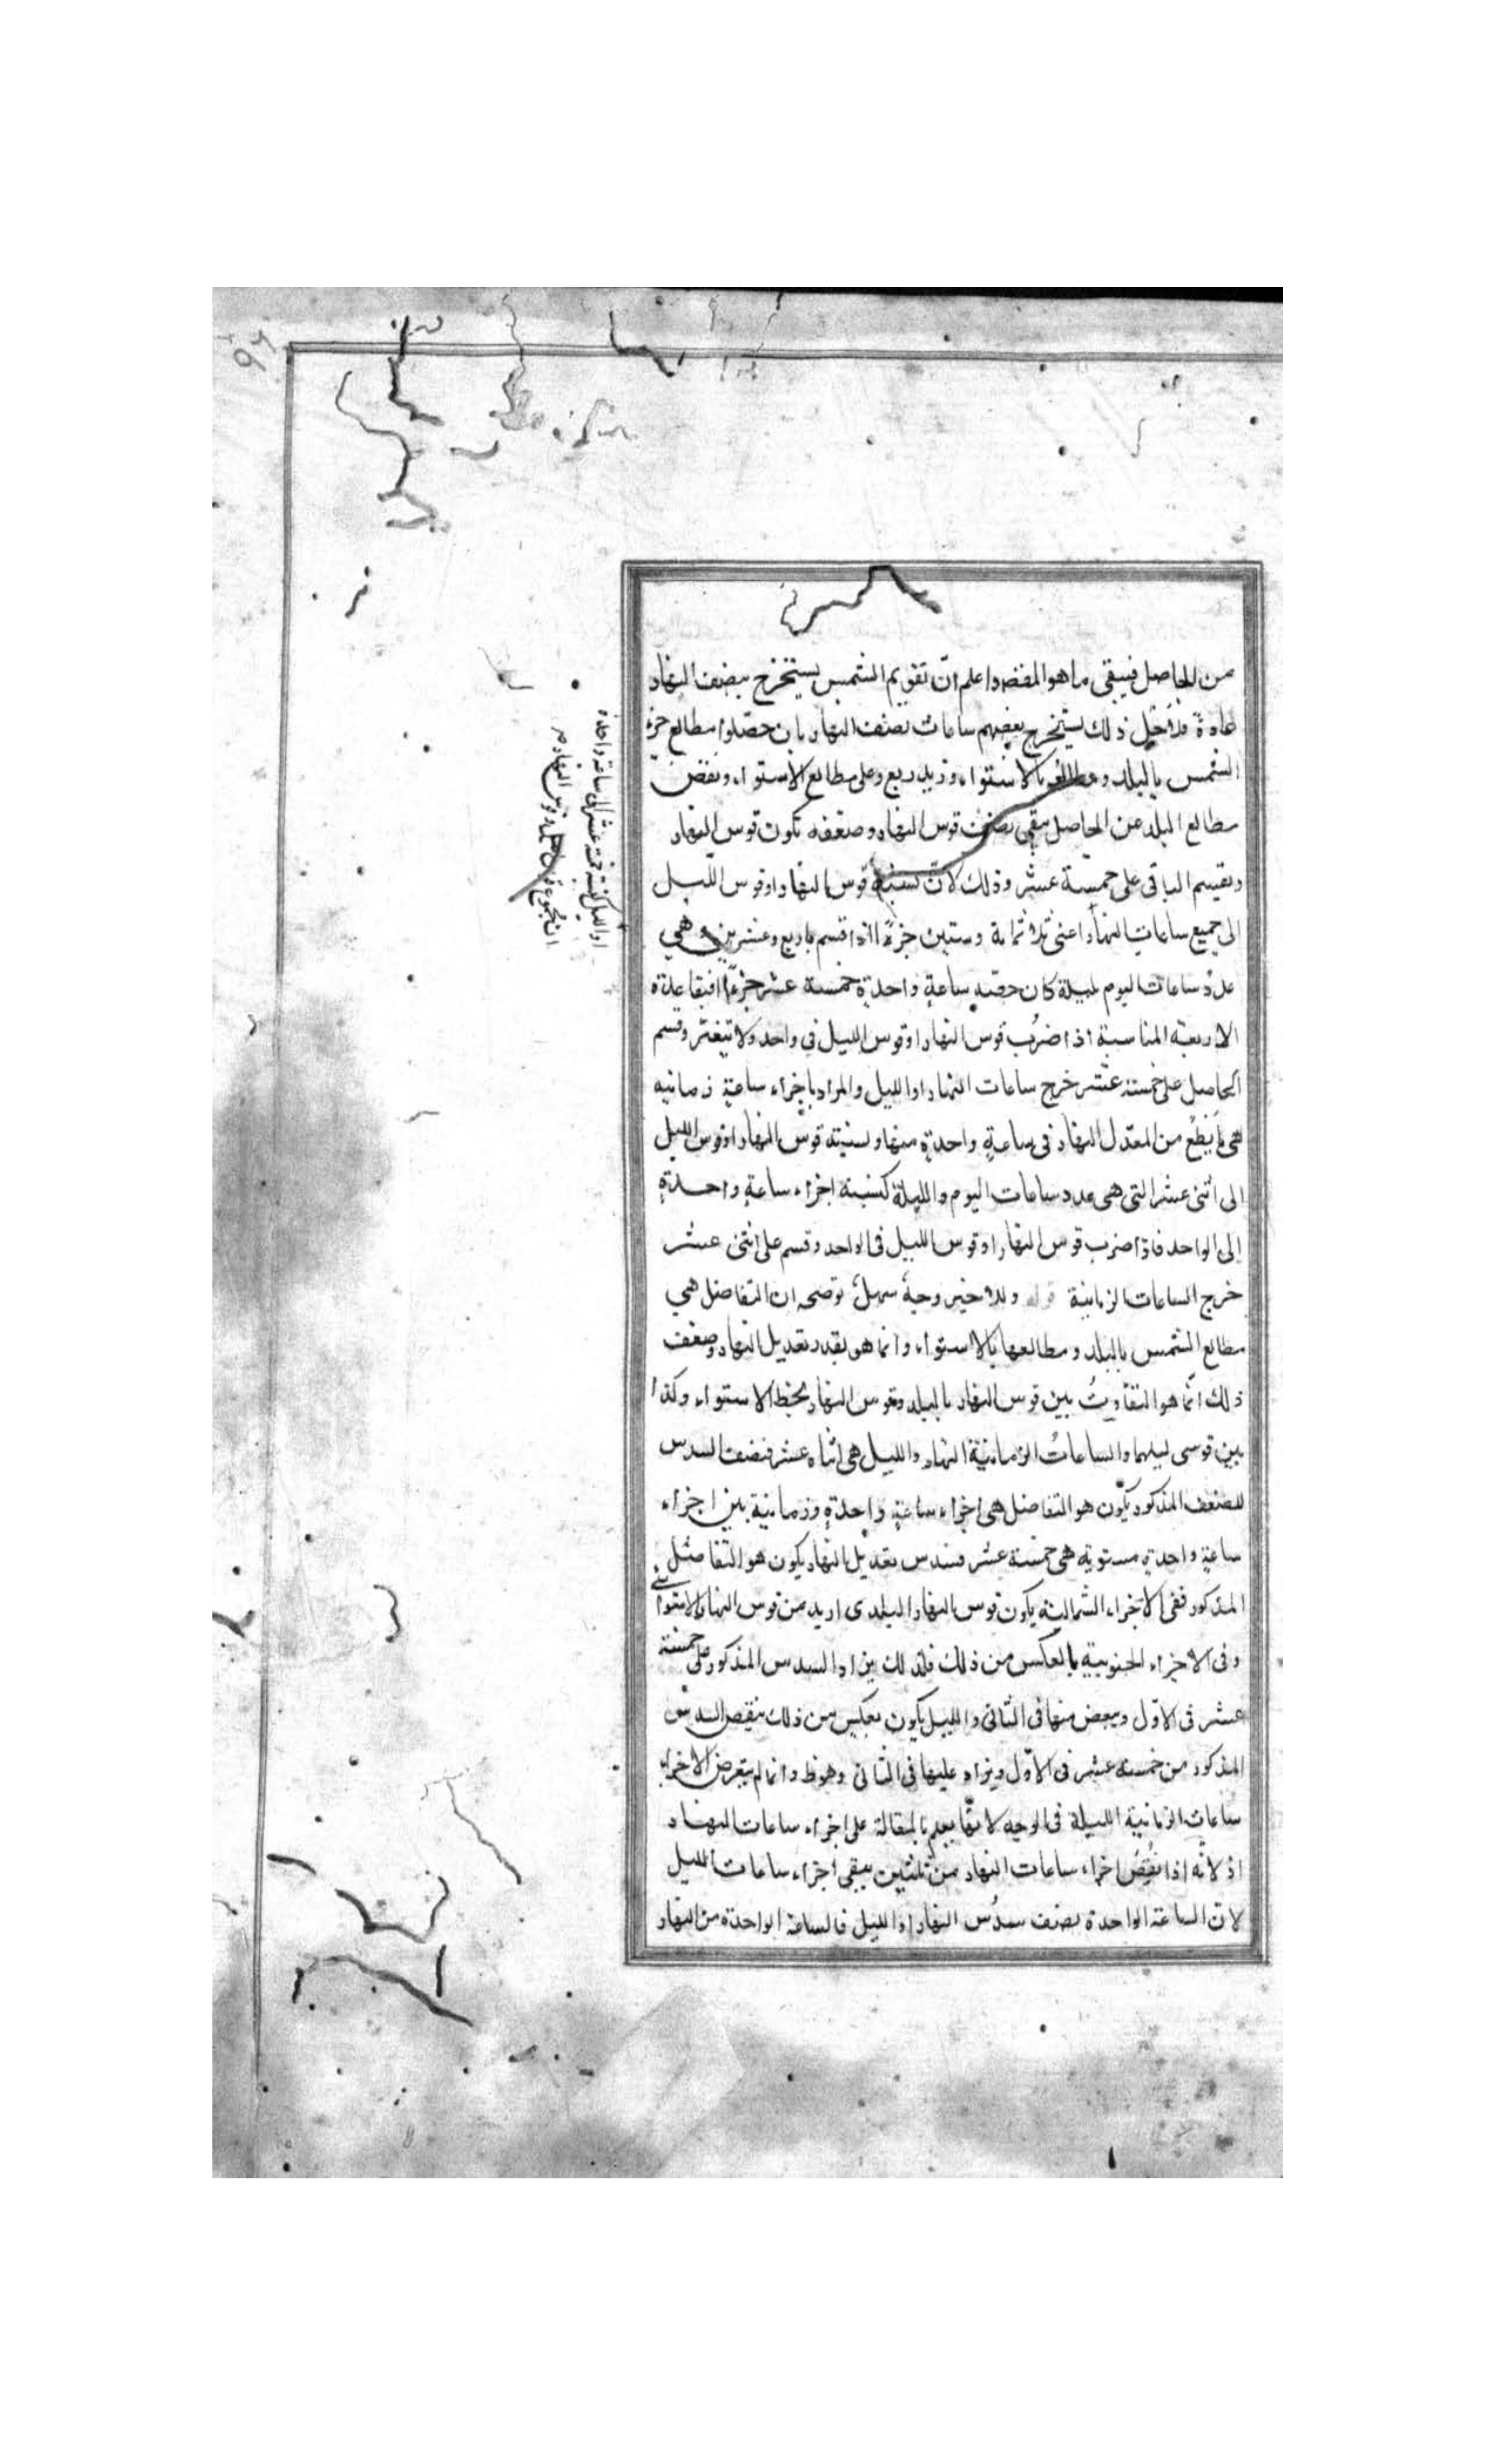 من الحاصل فيبقى ما هو المقصد واعلم انّ تقويم الشمس يستخرج بنصف النهار
عادة فلاجل ذلك يستخرج بعضهم ساعات نصف النهار بان حصّلوا مطالع جزء
الشمس بالبلد و بالاستواء وزيد ربع وعلى مطالع الاستواء ونقص
مطالع البلد من الحاصل يبقى نصف قوس النهار وضعفه تكون قوس النهار
ويقسم الباقى على خمسة عشر وذلك لانّ نسبة قوس النهار او قوس اللّيل
الى جميع ساعات النهار اعنى ثلاثماية وستين جزءً اذا قسم باربع وعشرين وهي
عدد ساعات اليوم بليلة كان حصّته ساعةٍ واحدةٍ خمسة عشر جزءً
الاربعة المناسبة اذا ضُرب قوس النهار او قوس الليل فى واحد ولا يتغيّر وقسم
الحاصل على خمسة عشر خرج ساعات النهار او الليل والمراد باجزاء ساعةٍ زمانيه
هى ما يَطلع من المعدّل النهار فى ساعةٍ واحدةٍ منها ونسبته قوس النهار او قوس الليل
الى اثنى عشر التى هى عدد ساعات اليوم والليلة كنسبة اجزاء ساعةٍ واحدةٍ
الى الواحد فاذا ضرب قوس النهار او قوس الليل فى الواحد وقسم على اثنى عشر
خرج الساعات الزمانية قوله وللاخير وجهٌ سهلٌ توضحه ان التفاضل هي
مطالع الشمس بالبلد ومطالعها بالاستواء وانما هو بقدر تعديل النهار وضعف
ذلك انّما هو التفاوتُ بين قوس النهار بالبلد وقوس النهار بخط الاستواء وكذا
بين قوسى ليلهما والساعاتُ الزمانيّة النهار والليل هى اثناه عشر فنصف السدس
للضعف المذكور يكون هو التفاضل هى اجزاء ساعةٍ واحدةٍ وزمانية بين اجزاء
ساعةٍ واحدةٍ مستويه هى خمسة عشر فسدس تعديل النهار يكون هو التفاضل
المذكور ففى الاجزاء الشمالية يكون قوس النهار البلدى ازيد من قوس النهار الاستوائى
وفى الاجزاء الجنوبية بالعكس من ذلك فلذلك يزاد السدس المذكور على خمسة
عشر فى الاوّل وينقص منها فى الثانى والليل يكون بعكس من ذلك ينقص السدس
المذكور من خمسة عشر فى الاوّل ويزاد عليها فى الثانى وهوظ وانما لم يتعرض الاجزاء
ساعات الزمانية الليلة فى الوجه لانّها يعلم بالمقالة على اجزاء ساعات النهار
اذ لانّه اذا نقُصُ اجزاء ساعات النهار من ثلثين يبقى اجزاء ساعات الليل
لانّ الساعة الواحدة نصف سدُس النهار او الليل فالساعة الواحدة من النهار
او الليل كنسبة خمسة عشر الى ساعة واحدة